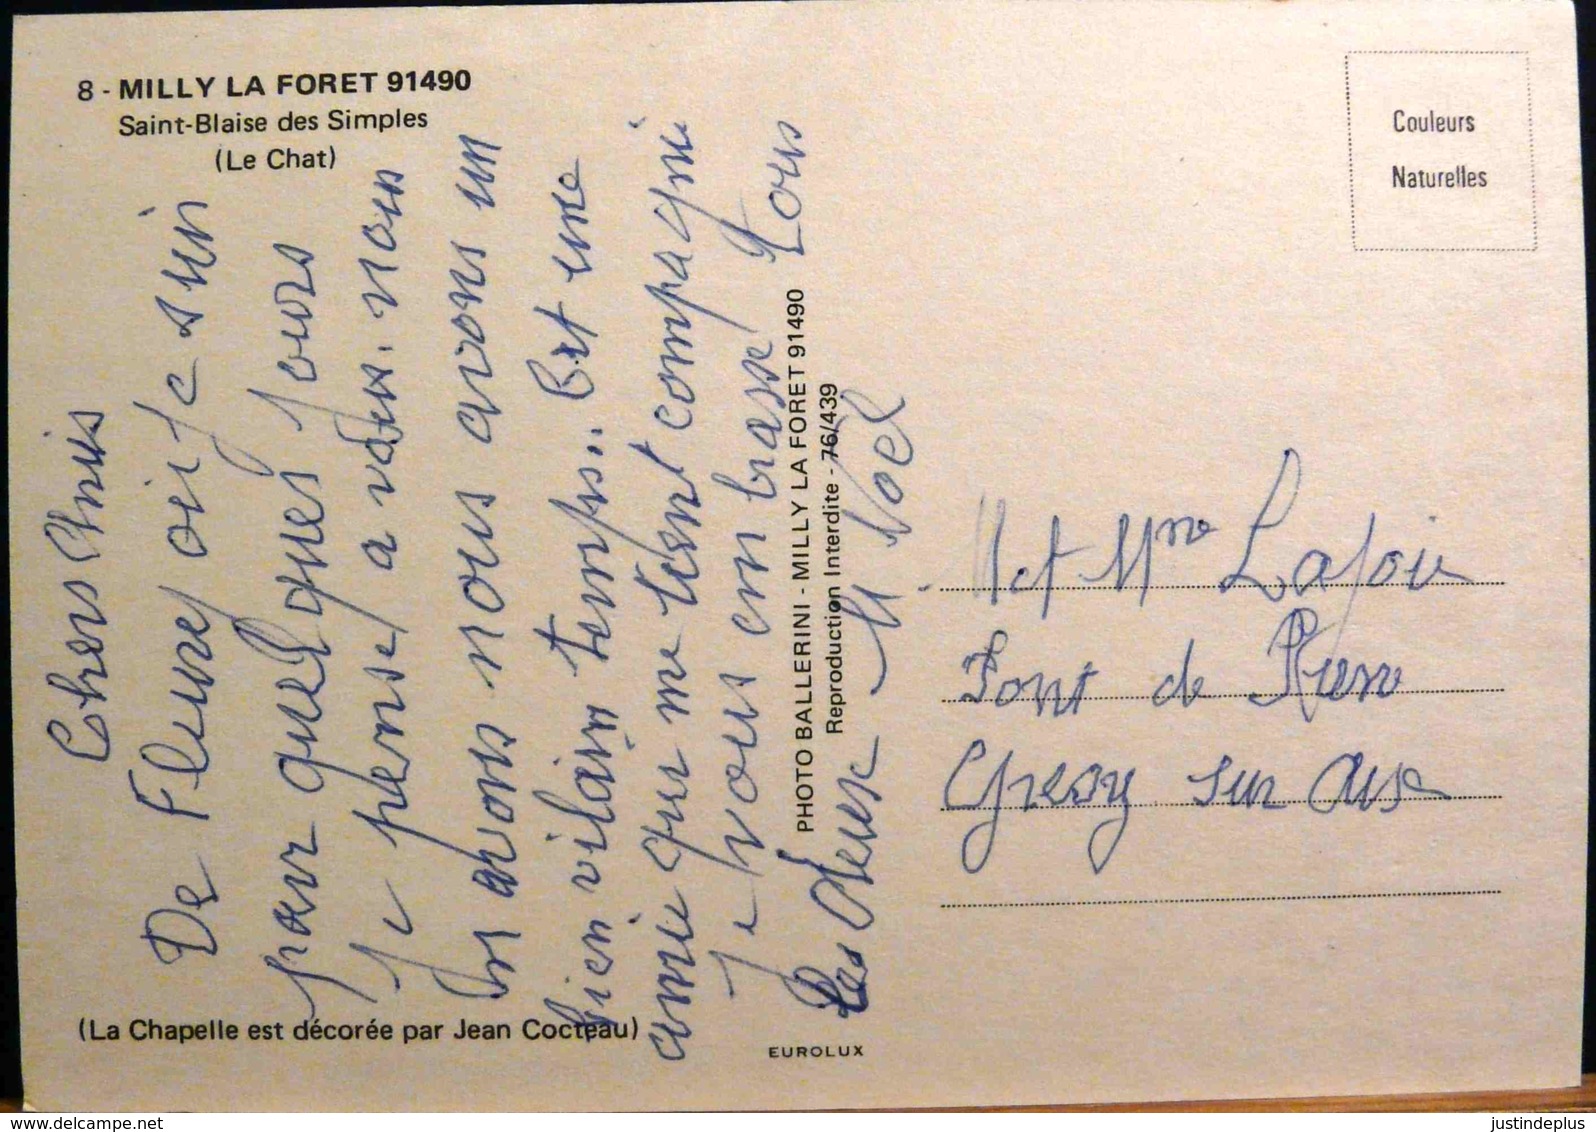 8 - MILLY LA FORET 91490
Saint-Blaise des Simples
(Le Chat)
Chers Amis
De Fleury oú je suis
pour quelques jours
Je pense a vous. nous
avons nous avons un
bien vilain temps.. Est une
amie qui me tient compagni
Je vous embrasse Tous
les Deux M Noël
(La Chapelle est décorée par Jean Cocteau)
PHOTO BALLERINI - MILLY LA FORET 91490
Reproduction Interdite - 76/439
EUROLUX
Couleurs
Naturelles
M et Mme Lafoie
Pont de Pierre
Gresy sur Aise
justindeplus